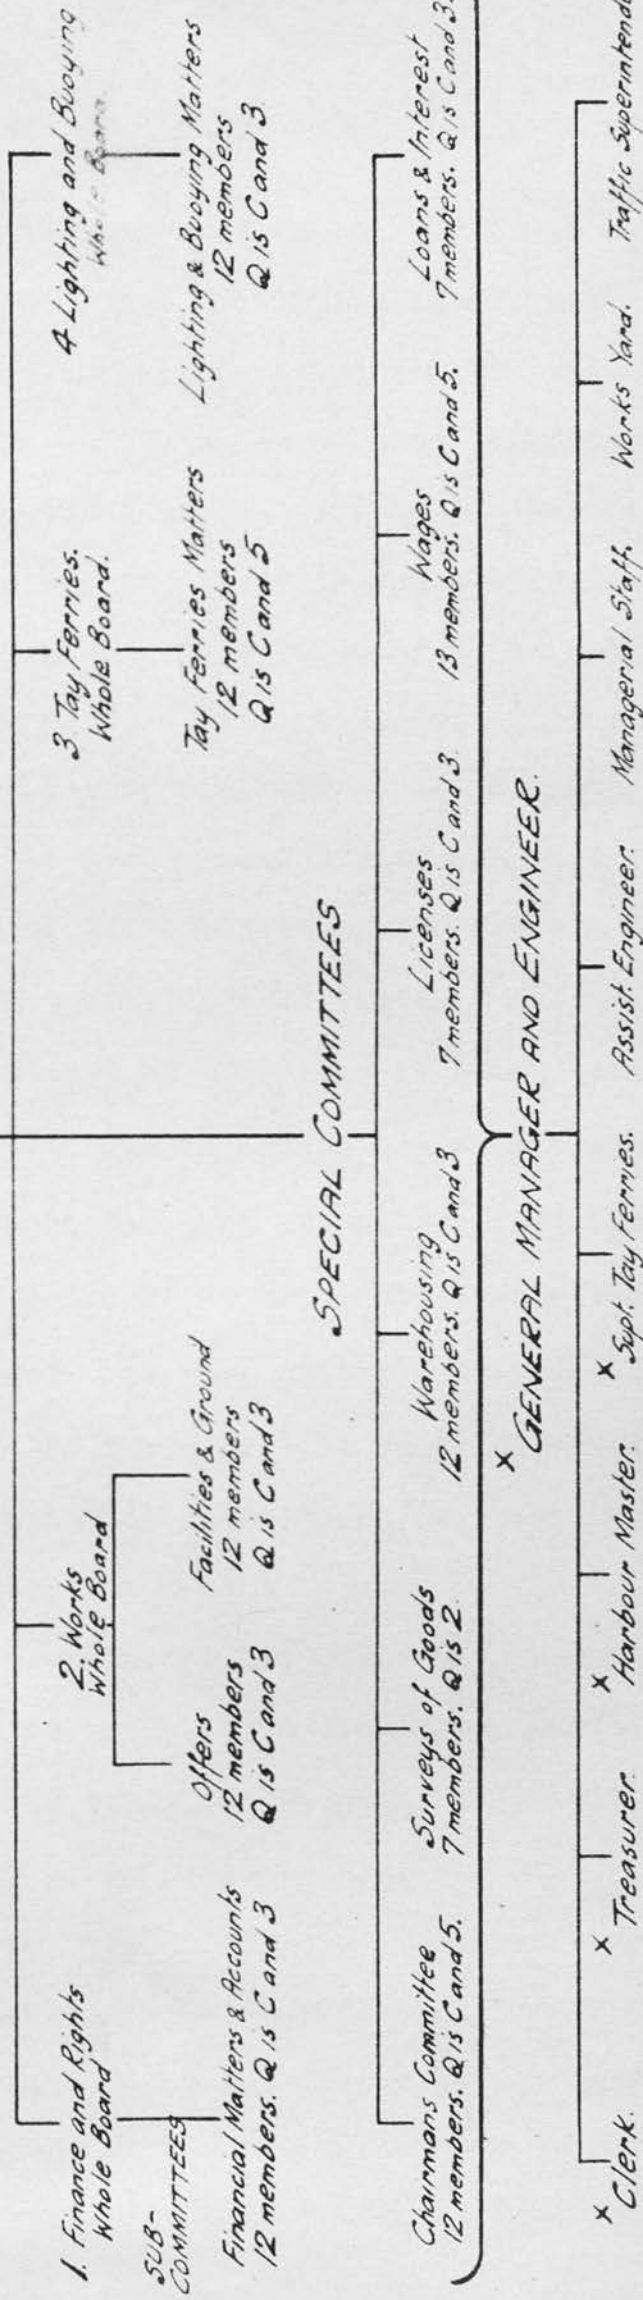 1. Finance and Rights
Whole Board
2. Works
Whole Board
3 Tay Ferries.
Whole Board.
4 Lighting and Buoying
Whole Board.
SUB-
COMMITTEES
Financial Matters & Accounts
12 members. Q is C and 3
Offers
12 members
Q is C and 3
Facilities & Ground
12 members
Q is C and 3
Tay Ferries Matters
12 members
Q is C and 5
Lighting & Buoying Matters
12 members
Q is C and 3
SPECIAL COMMITTEES
Chairmans Committee
12 members. Q is C and 5.
Surveys of Goods
7 members. Q is 2.
Warehousing
12 members. Q is C and 3
Licenses
7 members. Q is C and 3.
Wages
13 members. Q is C and 5.
Loans & Interest
7 members. Q is C and 3.
x GENERAL MANAGER AND ENGINEER.
x Clerk.
x Treasurer.
x Harbour Master.
x Supt. Tay Ferries.
Assist. Engineer.
Managerial Staff.
Works Yard.
Traffic